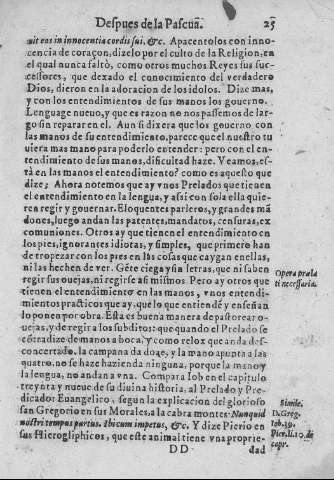 Despues de la Pascuā.
25
uit eos in innocentia cordis sui, &c. Apacentolos con inno-
cencia de coraçon, dizelo por el culto de la Religion, en
el qual nunca faltò, como otros muchos Reyes sus suc-
cessores, que dexado el conocimiento del verdadero
Dios, dieron en la adoracion de los idolos. Dize mas,
y con los entendimientos de sus manos los gouerno.
Lenguage nueuo, y que es razon no nos passemos de lar-
go sin reparar en el. Aun si dixera que los gouerno con
las manos de su entendimiento, parece que el nuestro tu
uiera mas mano para poderlo entender: pero con el en-
tendimiento de sus manos, dificultad haze. Veamos, es-
tà en las manos el entendimiento? como es aquesto que
dize; Ahora notemos que ay vnos Prelados que tienen
el entendimiento en la lengua, y assi con sola ella quie-
ren regir y gouernar. Eloquentes parleros, y grandes mā
dones, luego andan las patentes, mandatos, censuras, ex
comuniones. Otros ay que tienen el entendimiento en
los pies, ignorantes idiotas, y simples, que primero han
de tropezar con los pies en las cosas que caygan en ellas,
ni las hechen de ver. Gēte ciega y sin letras, que ni saben
regir sus ouejas, ni regirse asi mismos. Pero ay otros que
tienen el entendimiento en las manos, vnos entendi-
mientos practicos que ay, que lo que entiendē y enseñan
lo ponen por obra. Esta es buena manera de pastorear o-
uejas, y de regir a los subditos: que quando el Prelado se
cōtradize de manos a boca, y como relox que anda des-
concertado, la campana da doze, y la mano apunta a las
quatro, no se haze hazienda ninguna, porque la mano y
la lengua, no andan a vna. Compara Iob en el capitulo
treynta y nueue de su diuina historia, al Prelado y Pre-
dicador Euangelico, segun la explicacion del glorioso
san Gregorio en sus Morales, a la cabra montes. Nunquid
nosti tempus partus. Ibicum impetus, &c. Y dize Pierio en
sus Hieroglyphicos, que este animal tiene vna proprie-
DD
dad
Opera præla
ti necessaria.
Simile.
D. Greg.
Iob. 39.
Pier. li. 10. de
capr.